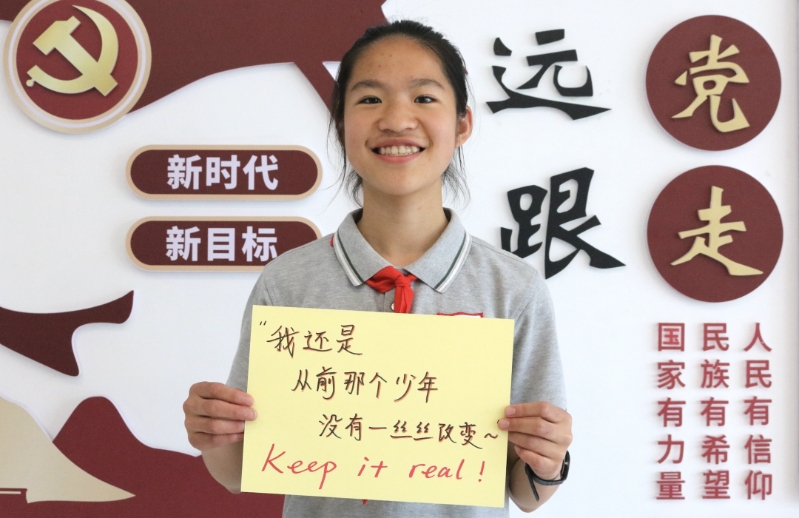 新时代
新目标
远 党
跟 走
人民有信仰
民族有希望
国家有力量
“我还是
从前那个少年
没有一丝丝改变~
Keep it real!